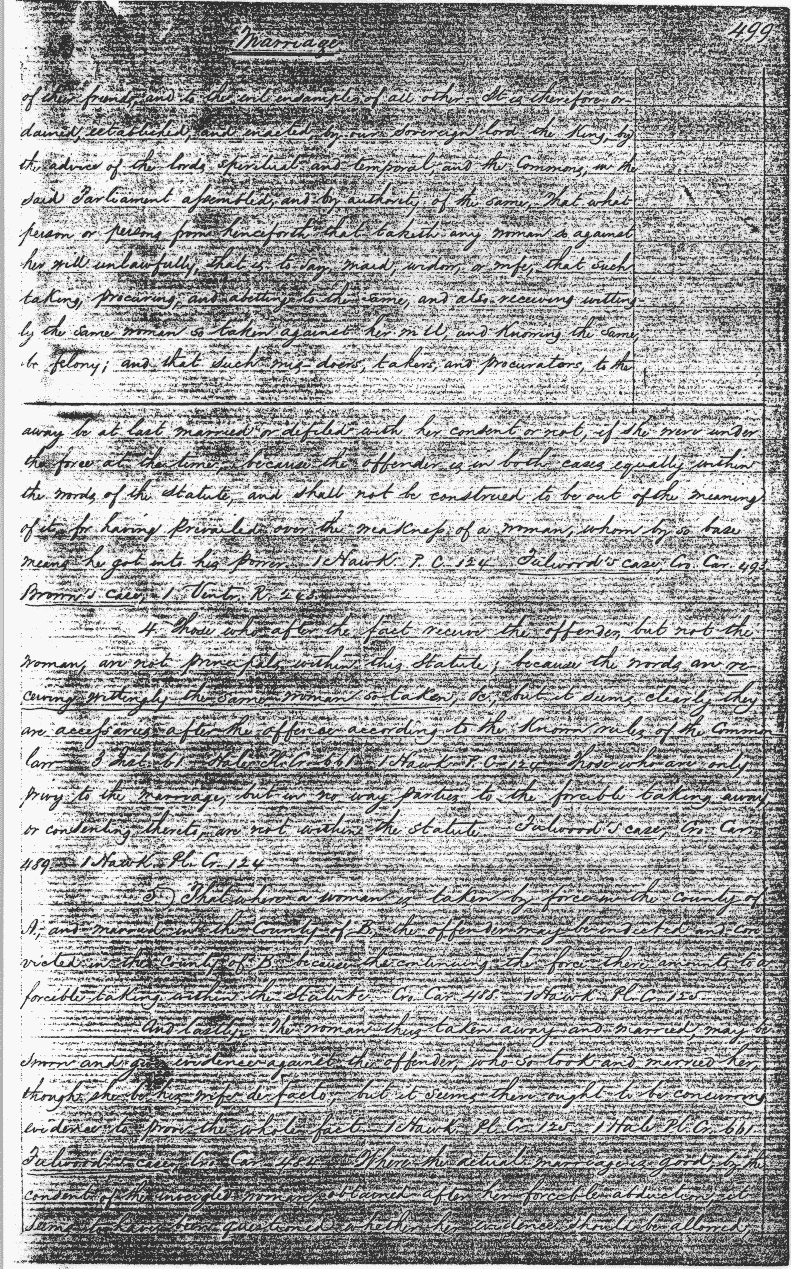 Marriage
499
of their friends, and to the evil ensample of all other. It is therefore or-
dained, established, and enacted by our sovereign lord the King, by
the advice of the lords spiritual and temporal, and the Commons, in the
said Parliament assembled, and by authority of the same, That what
person or persons from henceforth that taketh any woman so against
her will unlawfully, that is to say, maid, widow, or wife, that such
taking, procuring, and abetting to the same, and also receiving witting
ly the same woman so taken against her will, and knowing the same,
be felony; and that such mis-doers, takers, and procurators, to the
away be at last married or defiled with her consent or not, if she were under
the force at the time; because the offender is in both cases equally within
the words of the Statute, and shall not be construed to be out of the meaning
of it, for having prevailed over the weakness of a woman, whom by so base
means he got into his power. 1 Hawk. P. C. 124 Fulwood's case, Cro. Car. 493
Brown's case, 1 Ventr. R. 243
4 Those who after the fact receive the offender, but not the
woman, are not principals within this Statute; because the words are re-
ceiving wittingly the same woman so taken, &c, but it seems clearly they
are accessaries after the offence according to the known rules of the Common
law 3 Inst. 61 Hale H. Cr. 661 1 Hawk. P. C. 124 Those who are only
privy to the marriage, but in no way parties to the forcible taking away
or consenting thereto, are not within the Statute Fulwood's case, Cro. Car.
489 1 Hawk. Pl. Cr. 124
5) That where a woman is taken by force in the County of
A, and married in the County of B, the offender may be indicted and con
victed in the county of B, because the continuing the force there amounts to a
forcible taking within the Statute Cro. Car. 488 1 Hawk. Pl. Cr. 125
And lastly, The woman thus taken away and married, may be
sworn and give evidence against the offender, who so took and married her,
though she be his wife de facto; but it seems there ought to be concurring
evidence to prove the whole fact. 1 Hawk. Pl. Cr. 125 1 Hale Pl. Cr. 661
Fulwood's case, Cro. Car. 488 Where the actual marriage is good, by the
consent of the inveigled woman, obtained after her forcible abduction, it
seems to have been questioned whether her evidence should be allowed;